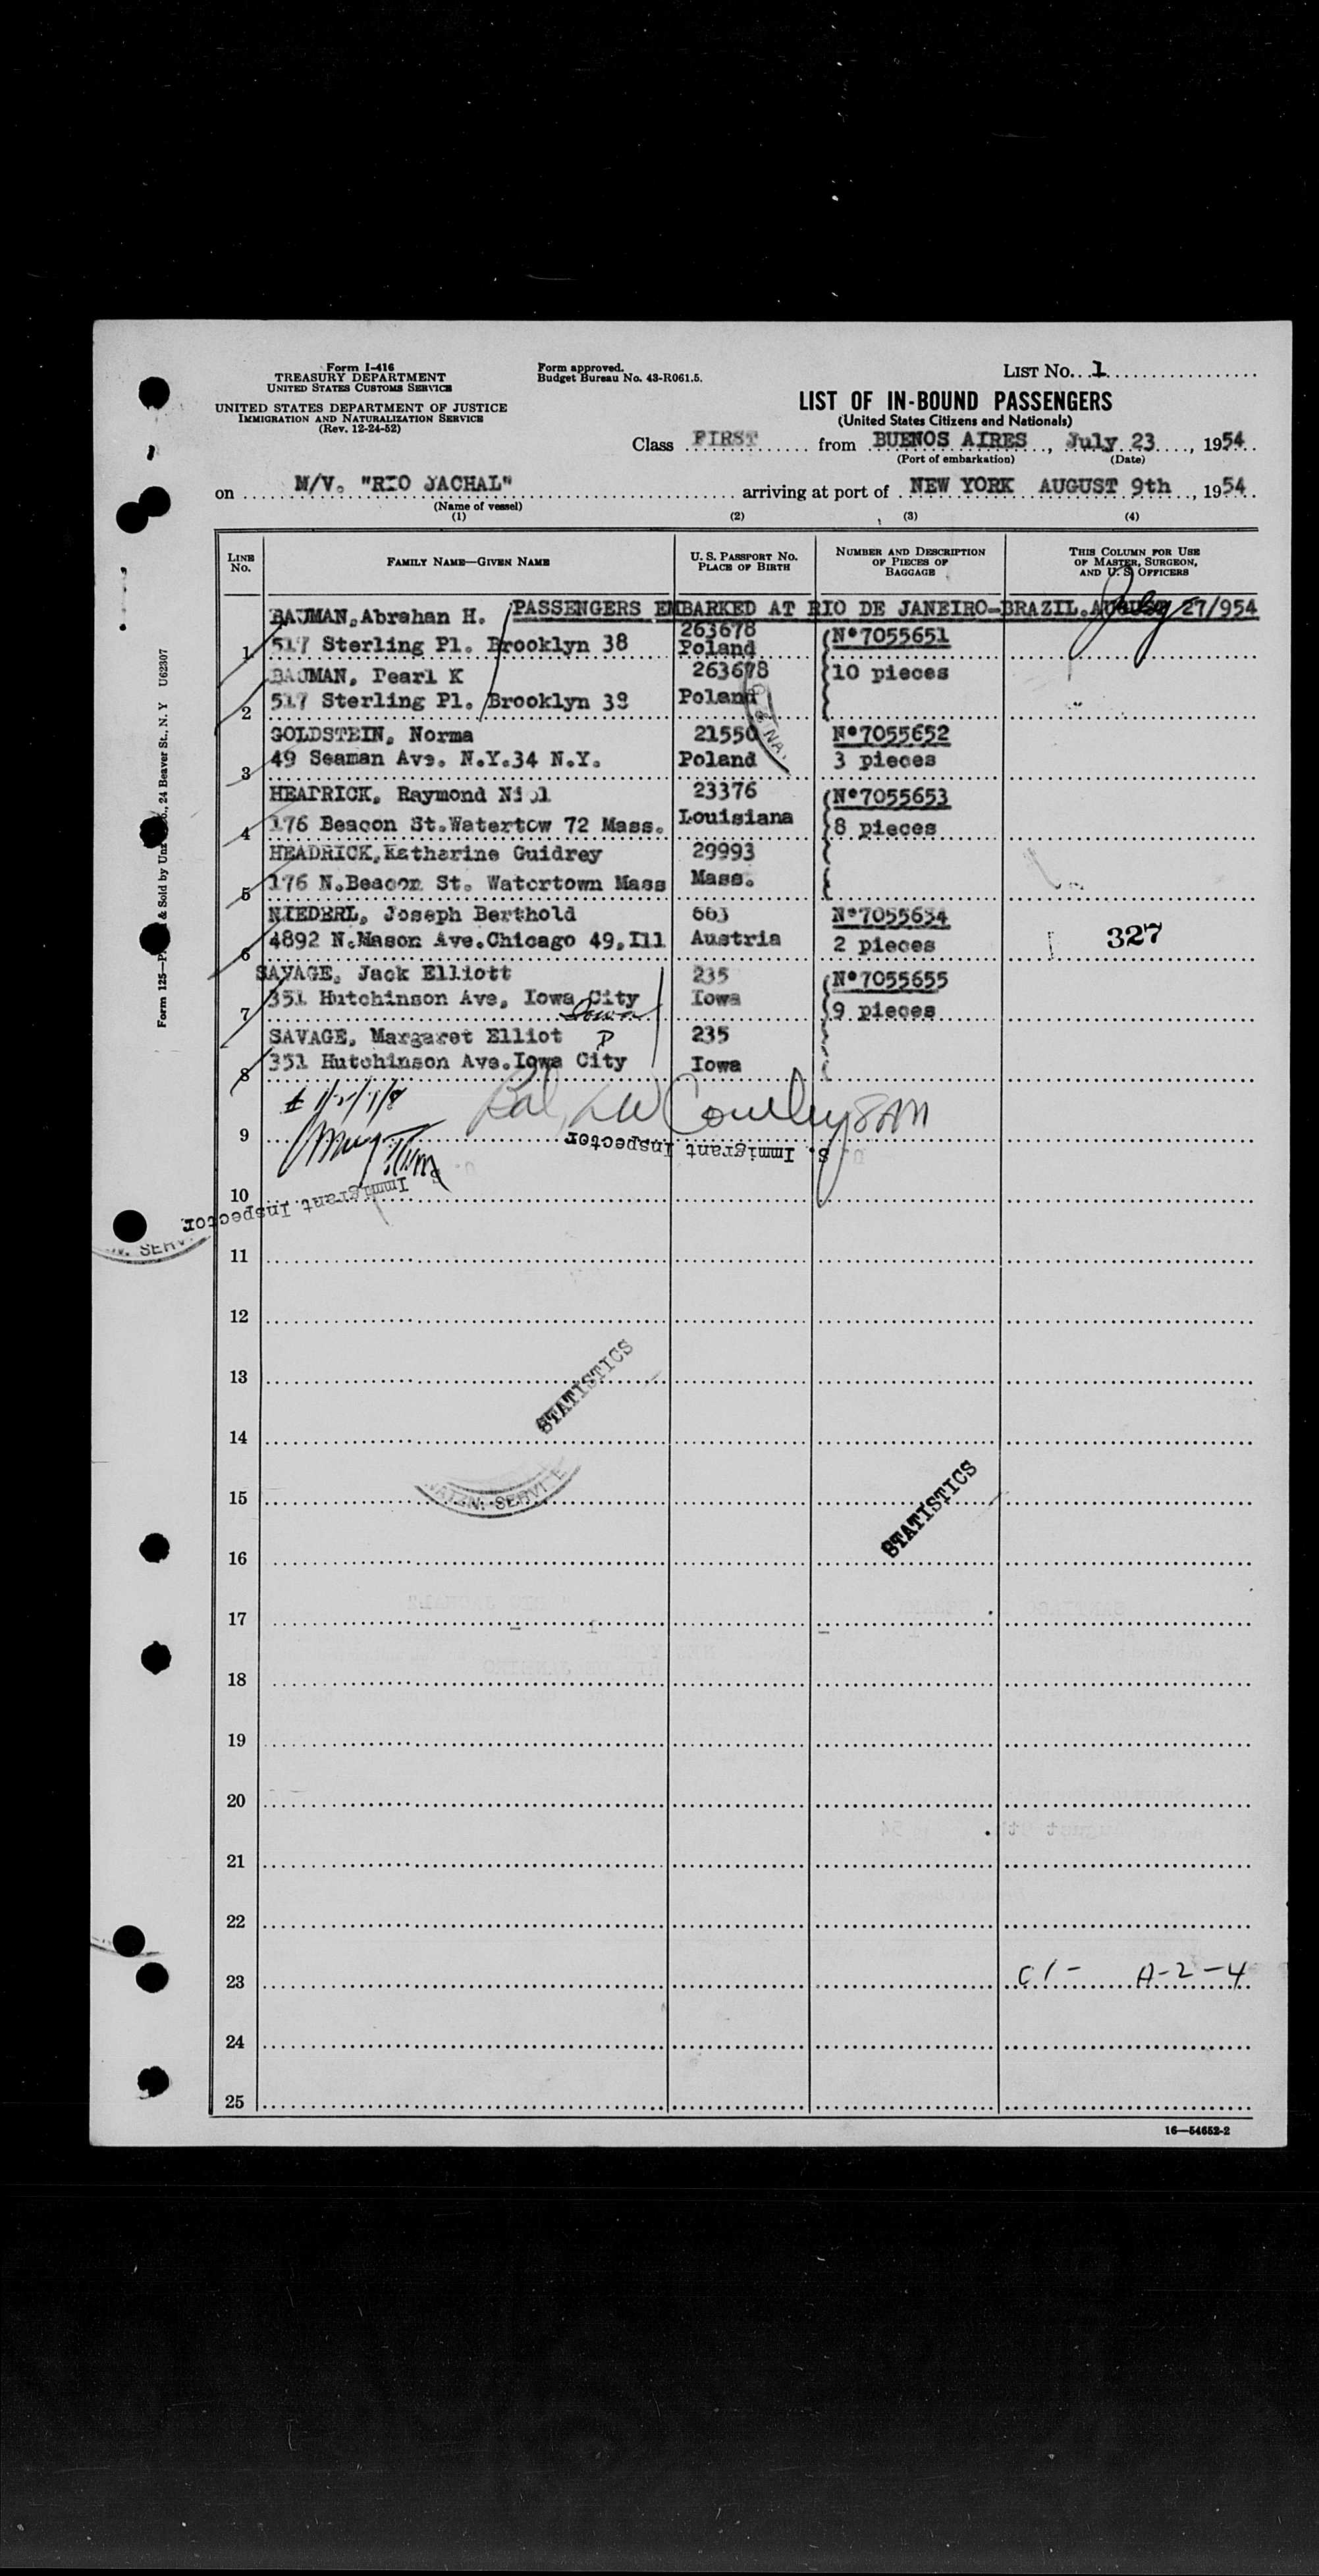 Form I-416
TREASURY DEPARTMENT
UNITED STATES CUSTOMS SERVICE
UNITED STATES DEPARTMENT OF JUSTICE
IMMIGRATION AND NATURALIZATION SERVICE
(Rev. 12-24-52)
Form approved.
Budget Bureau No. 43-R061.5.
LIST NO. 1
LIST OF IN-BOUND PASSENGERS
(United States Citizens and Nationals)
Class FIRST from BUENOS AIRES, July 23, 1954
(Port of embarkation) (Date)
on M/V. "RIO JACHAL" arriving at port of NEW YORK AUGUST 9th, 1954
(Name of vessel)
(1) (2) (3) (4)
LINE No.
FAMILY NAME—GIVEN NAME
U. S. PASSPORT NO. PLACE OF BIRTH
NUMBER AND DESCRIPTION OF PIECES OF BAGGAGE
THIS COLUMN FOR USE OF MASTER, SURGEON, AND U. S. OFFICERS
PASSENGERS EMBARKED AT RIO DE JANEIRO-BRAZIL. AUGUST July 27/954
BAUMAN, Abrahan H. 263678 Nº 7055651
1 517 Sterling Pl. Brooklyn 38 Poland
BAUMAN, Pearl K 263678 10 pieces
2 517 Sterling Pl. Brooklyn 38 Poland
GOLDSTEIN, Norma 21550 Nº 7055652
3 49 Seaman Ave. N.Y.34 N.Y. Poland 3 pieces
HEADRICK, Raymond 23376 Nº 7055653
4 176 Beacon St.Watertow 72 Mass. Louisiana 8 pieces
HEADRICK, Katharine Guidrey 29993
5 176 N.Beacon St. Watertown Mass Mass.
NIEDERL, Joseph Berthold 663 Nº 7055654
6 4892 N.Mason Ave.Chicago 49,Ill Austria 2 pieces 327
SAVAGE, Jack Elliott 235 Nº 7055655
7 351 Hutchinson Ave, Iowa City Iowa Iowa 9 pieces
SAVAGE, Margaret Elliot P 235
8 351 Hutchinson Ave.Iowa City Iowa
9
U. S. Immigrant Inspector
10
S. Immigrant Inspector
SERV
11
12
13
STATISTICS
14
15
NATZN. SERVICE
STATISTICS
16
17
18
19
20
21
22
23 C1- A-2-4
24
25
16—54652-2
Form 125— & Sold by 24 Beaver St., N. Y U62307